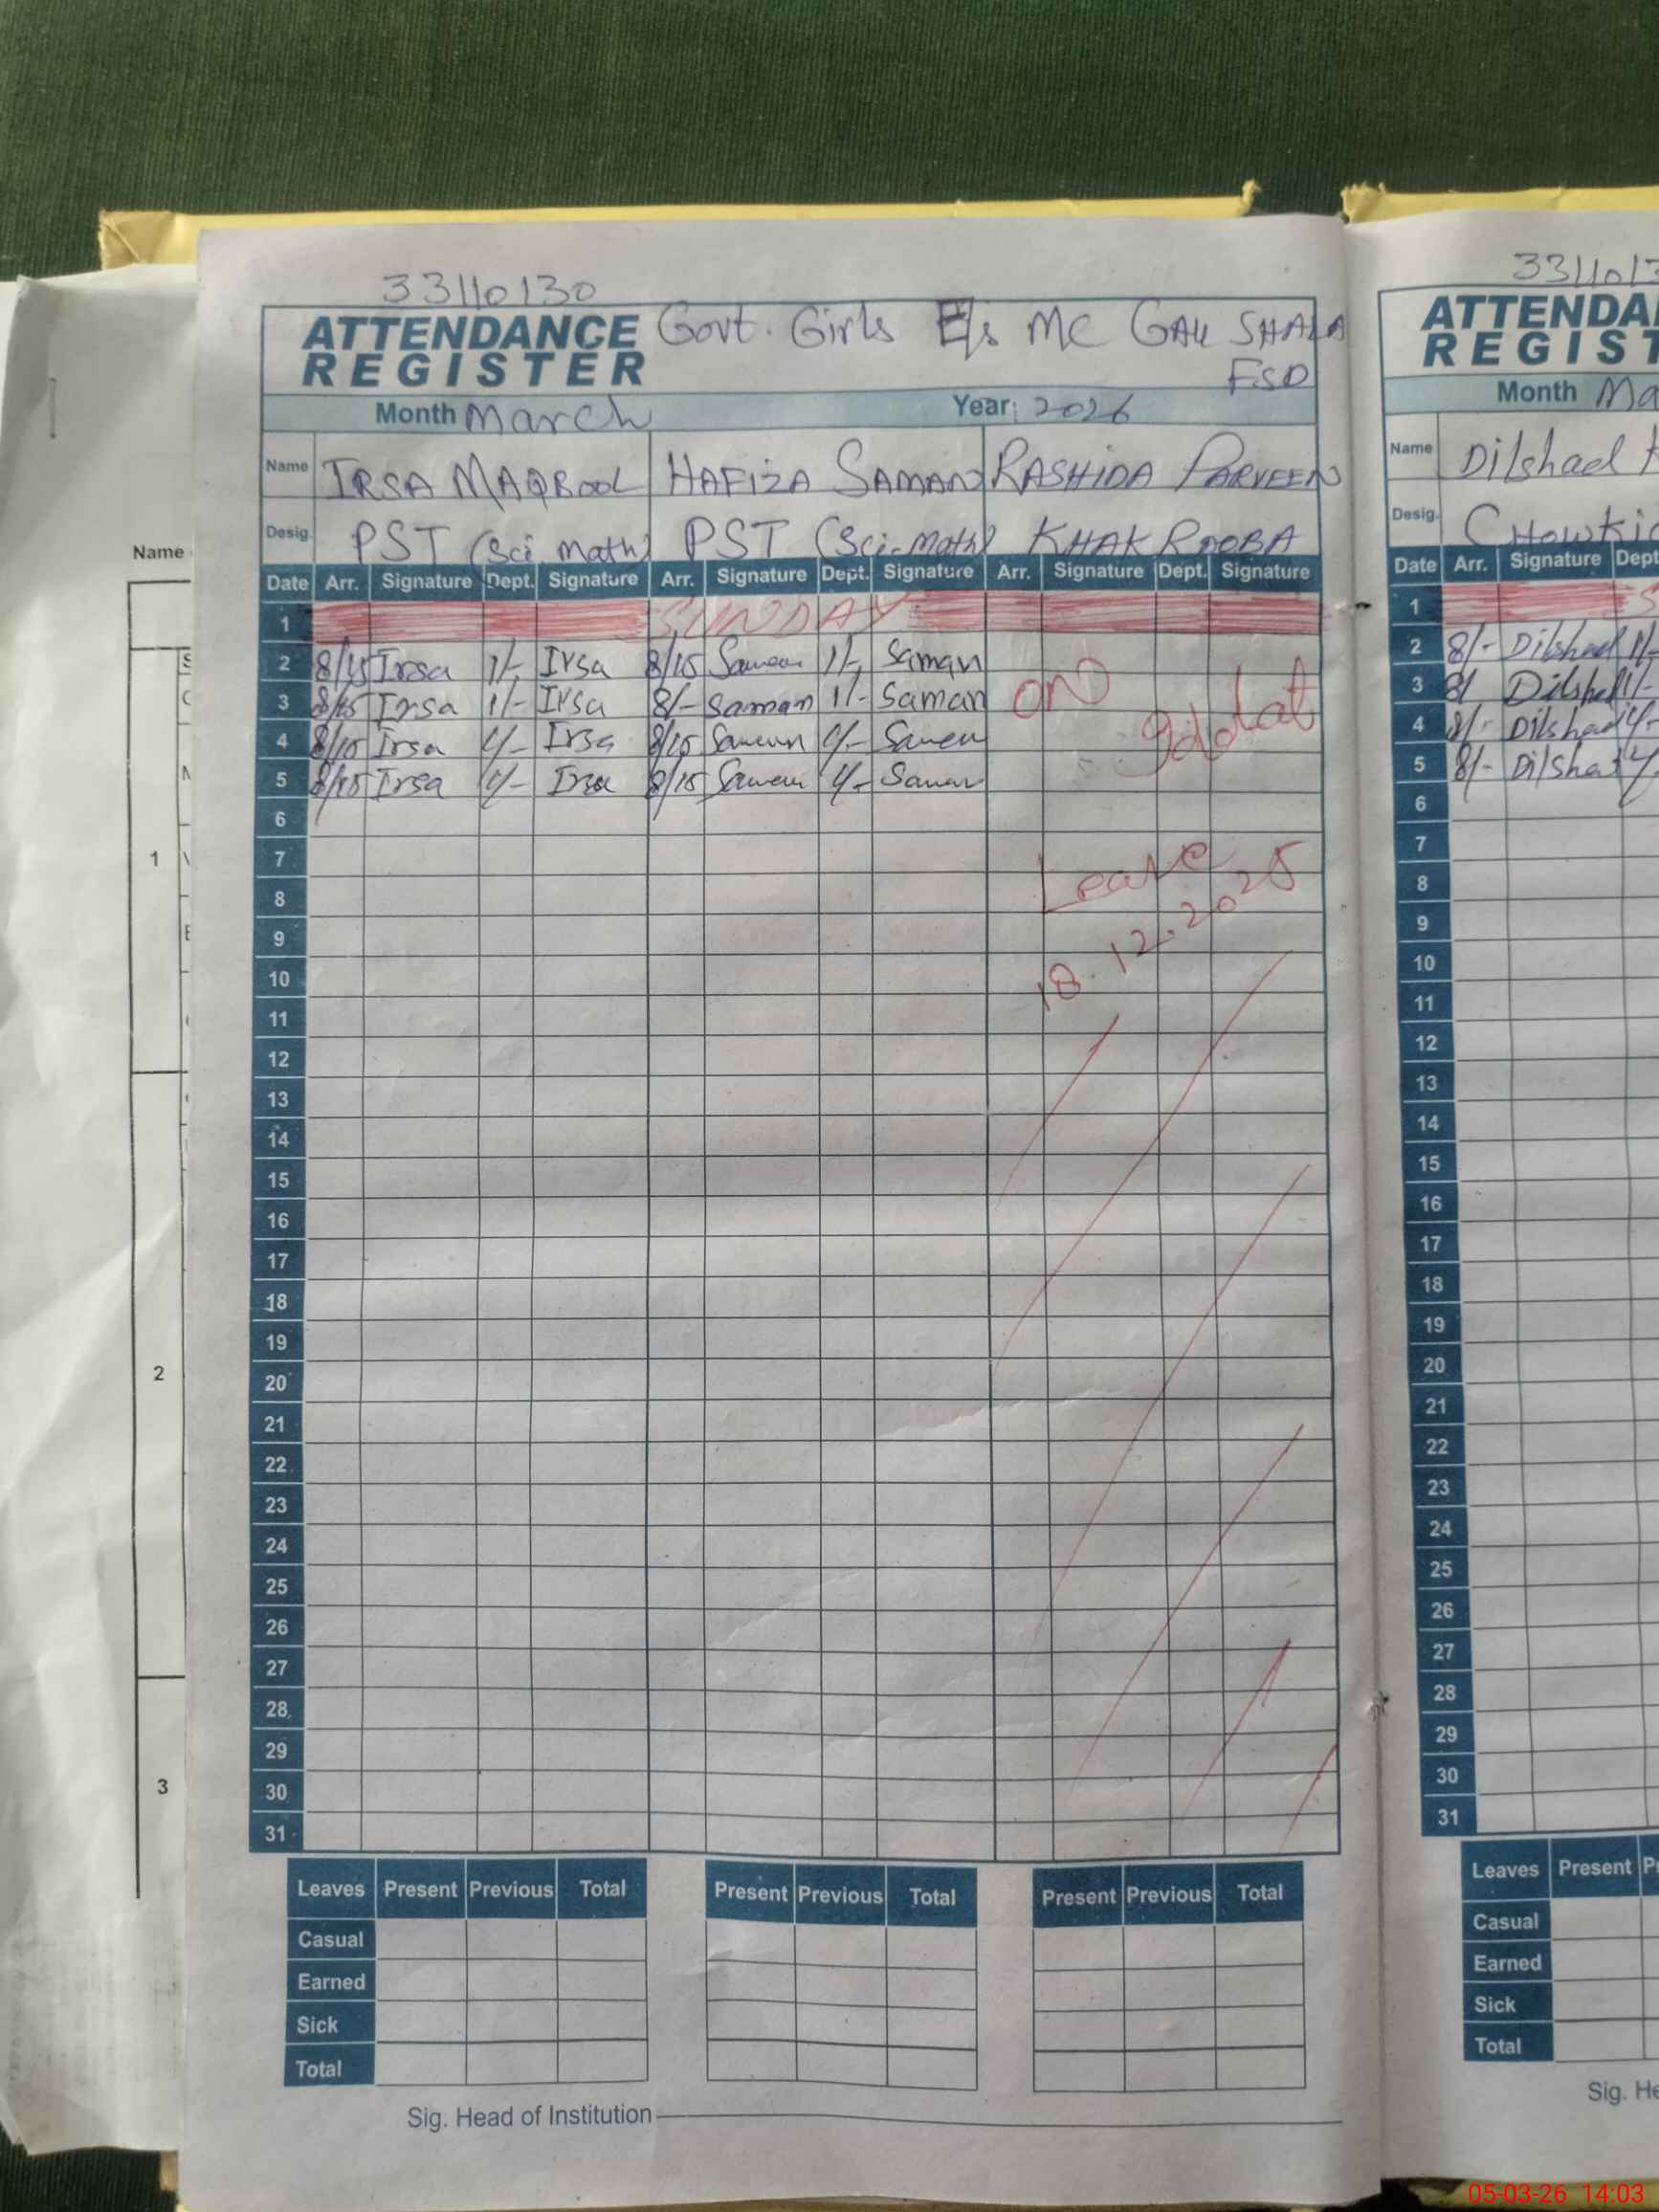 33110130
ATTENDANCE REGISTER Govt. Girls E/s MC GAU SHALA
FSD
Month March Year: 2026
Name IRSA MAQBOOL HAFIZA SAMAN RASHIDA PARVEEN
Desig. PST (Sci. Math) PST (Sci-Math) KHAK ROOBA
Date Arr. Signature Dept. Signature Arr. Signature Dept. Signature Arr. Signature Dept. Signature
1 SUNDAY
2 8/15 Irsa 1/- Irsa 8/15 Saman 1/- Saman
3 8/15 Irsa 1/- Irsa 8/- Saman 1/- Saman
4 8/15 Irsa Irsa 8/15 Saman Saman
5 8/15 Irsa Irsa 8/15 Saman Saman
ON
Leave
18.12.2025
6
7
8
9
10
11
12
13
14
15
16
17
18
19
20
21
22
23
24
25
26
27
28
29
30
31
Leaves Present Previous Total Present Previous Total Present Previous Total
Casual
Earned
Sick
Total
Sig. Head of Institution
ATTENDA
REGIST
Month Ma
Name Dilshad
Desig. CHowki
Date Arr. Signature Dept
1
2 8/- Dilshad 1/-
3 8/ Dilshad 1/-
4 8/- Dilshad
5 8/- Dilshad
6
7
8
9
10
11
12
13
14
15
16
17
18
19
20
21
22
23
24
25
26
27
28
29
30
31
Leaves Present
Casual
Earned
Sick
Total
Sig. He
Name
1
2
3
05-03-26 14:03